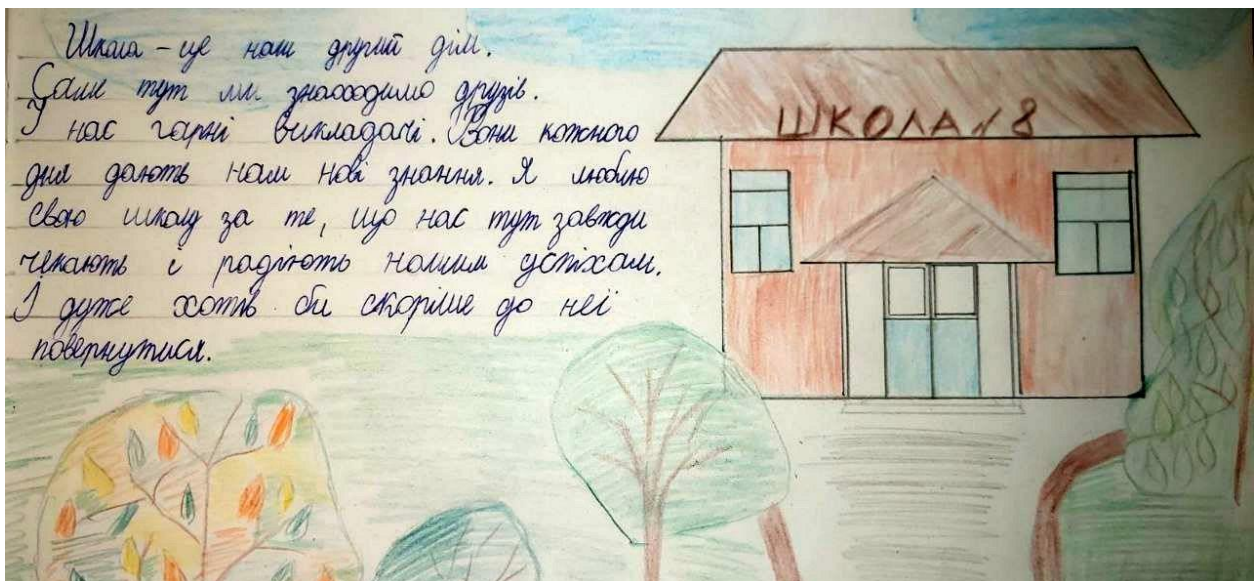 Школа - це наш другий дім.
Саме тут ми знаходимо друзів.
У нас гарні викладачі. Вони кожного
дня дають нам нові знання. Я люблю
свою школу за те, що нас тут завжди
чекають і радіють нашим успіхам.
І дуже хотів би скоріше до неї
повернутися.
ШКОЛА №8